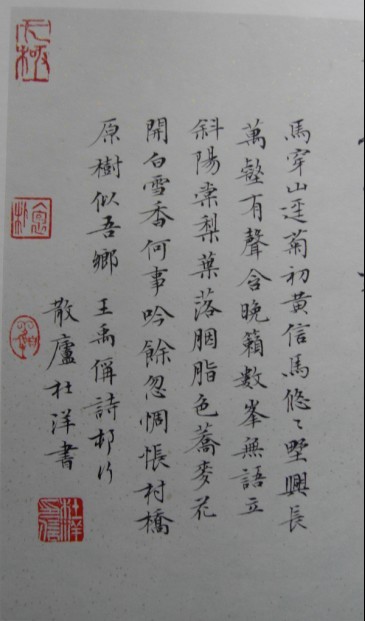 馬穿山逕菊初黃信馬悠〻墅興長
萬壑有聲含晚籟數峯無語立
斜陽棠梨葉落胭脂色蕎麥花
開白雪香何事吟餘忽惆悵村橋
原樹似吾鄉 王禹偁詩邨行
散廬杜洋書